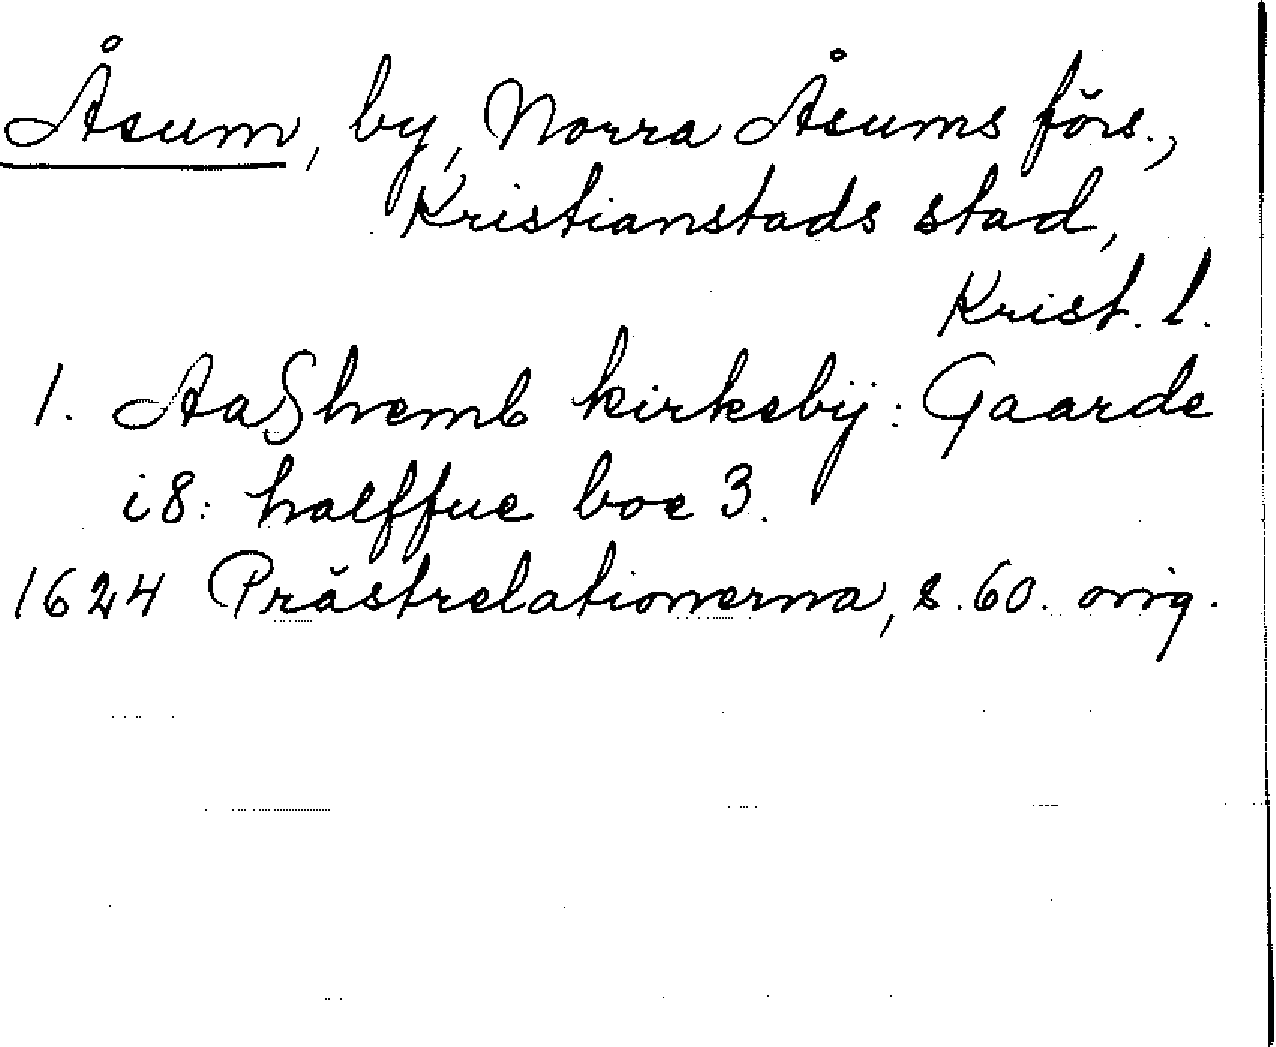 Åsum, by, Norra Åsums förs.,
Kristianstads stad,
Krist. l.
1. AaShemb kirkebÿ: Gaarde
i8: halffue boe 3.
1624 Prästrelationerna, s. 60. orig.